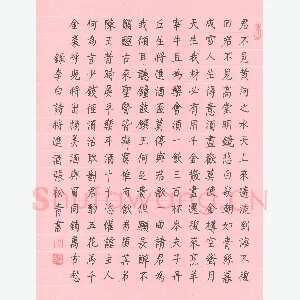 君不見黃河之水天上來奔流到海不復
回君不見高堂明鏡悲白髮朝如青絲暮
成雪人生得意須盡歡莫使金樽空對月
天生我材必有用千金散盡還復來烹羊
宰牛且為樂會須一飲三百杯岑夫子丹
丘生將進酒杯莫停與君歌一曲請君為
我傾耳聽鐘鼓饌玉何足貴但願長醉不
願醒古來聖賢皆寂寞惟有飲者留其名
陳王昔時宴平樂斗酒十千恣歡謔主人
何為言少錢徑須沽取對君酌五花馬千
金裘呼兒將出換美酒與爾同銷萬古愁
錄李白詩將進酒張松青書